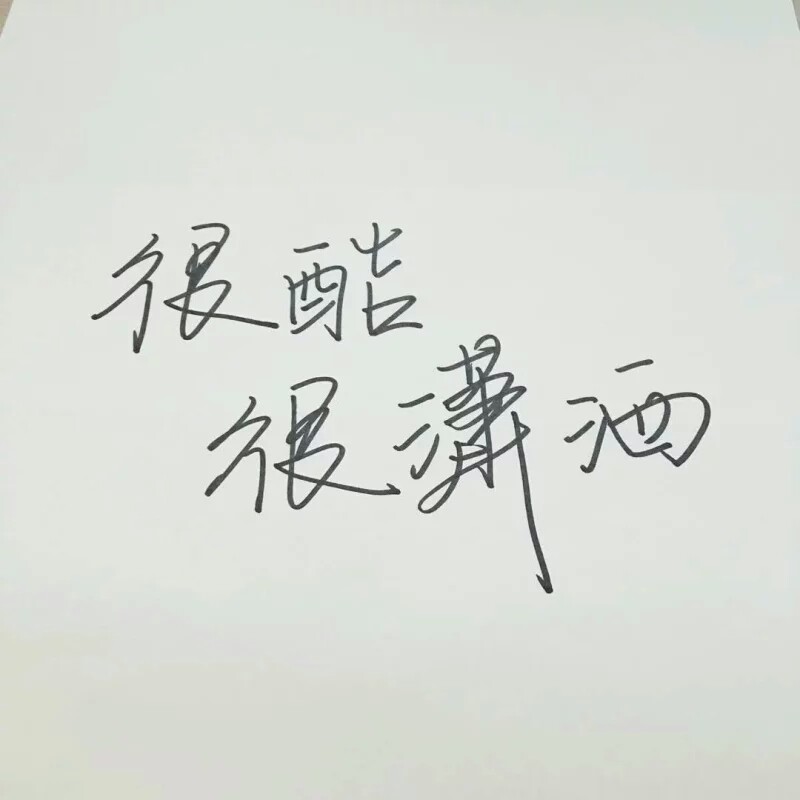 很酷
很潇洒